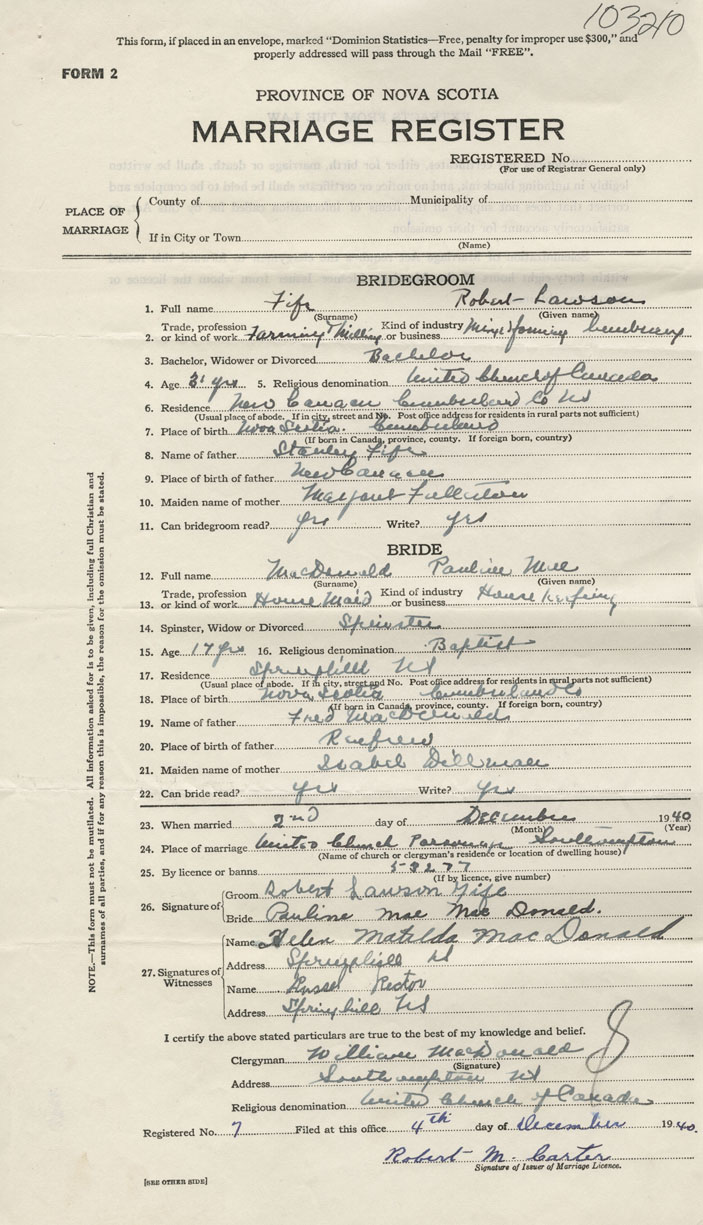 103210
This form, if placed in an envelope, marked "Dominion Statistics—Free, penalty for improper use $300," and
properly addressed will pass through the Mail "FREE".
FORM 2
PROVINCE OF NOVA SCOTIA
MARRIAGE REGISTER
REGISTERED No.
(For use of Registrar General only)
PLACE OF MARRIAGE
County of Municipality of
If in City or Town
(Name)
BRIDEGROOM
1. Full name Fife Robert Lawson
(Surname) (Given name)
Trade, profession Kind of industry
2. or kind of work Farming & Milling or business Mixed farming Cumberland
3. Bachelor, Widower or Divorced Bachelor
4. Age 31 yrs 5. Religious denomination United Church of Canada
6. Residence New Canaan Cumberland Co NS
(Usual place of abode. If in city, street and No. Post office address for residents in rural parts not sufficient)
7. Place of birth Nova Scotia. Cumberland
(If born in Canada, province, county. If foreign born, country)
8. Name of father Stanley Fife
9. Place of birth of father New Canaan
10. Maiden name of mother Margaret Fullerton
11. Can bridegroom read? yes Write? yes
BRIDE
12. Full name MacDonald Pauline Mae
(Surname) (Given name)
Trade, profession Kind of industry
13. or kind of work House Maid or business House keeping
14. Spinster, Widow or Divorced Spinster
15. Age 17 yrs 16. Religious denomination Baptist
17. Residence Springhill NS
(Usual place of abode. If in city, street and No. Post office address for residents in rural parts not sufficient)
18. Place of birth Nova Scotia Cumberland Co
(If born in Canada, province, county. If foreign born, country)
19. Name of father Fred MacDonald
20. Place of birth of father Renfrew
21. Maiden name of mother Isabel Dillman
22. Can bride read? yes Write? yes
23. When married 2nd day of December 1940
(Month) (Year)
24. Place of marriage United Church Parsonage Southampton
(Name of church or clergyman's residence or location of dwelling house)
25. By licence or banns 58277
(If by licence, give number)
26. Signature of
Groom Robert Lawson Fife
Bride Pauline Mae Mac Donald.
27. Signatures of Witnesses
Name Helen Matilda MacDonald
Address Springhill NS
Name Russel
Address Springhill NS
I certify the above stated particulars are true to the best of my knowledge and belief.
Clergyman William MacDonald
(Signature)
Address Southampton NS
Religious denomination United Church of Canada
Registered No. 7 Filed at this office 4th day of December 1940.
Robert M. Carter
Signature of Issuer of Marriage Licence.
[SEE OTHER SIDE]
NOTE.—This form must not be mutilated. All information asked for is to be given, including full Christian and
surnames of all parties, and if for any reason this is impossible, the reason for the omission must be stated.